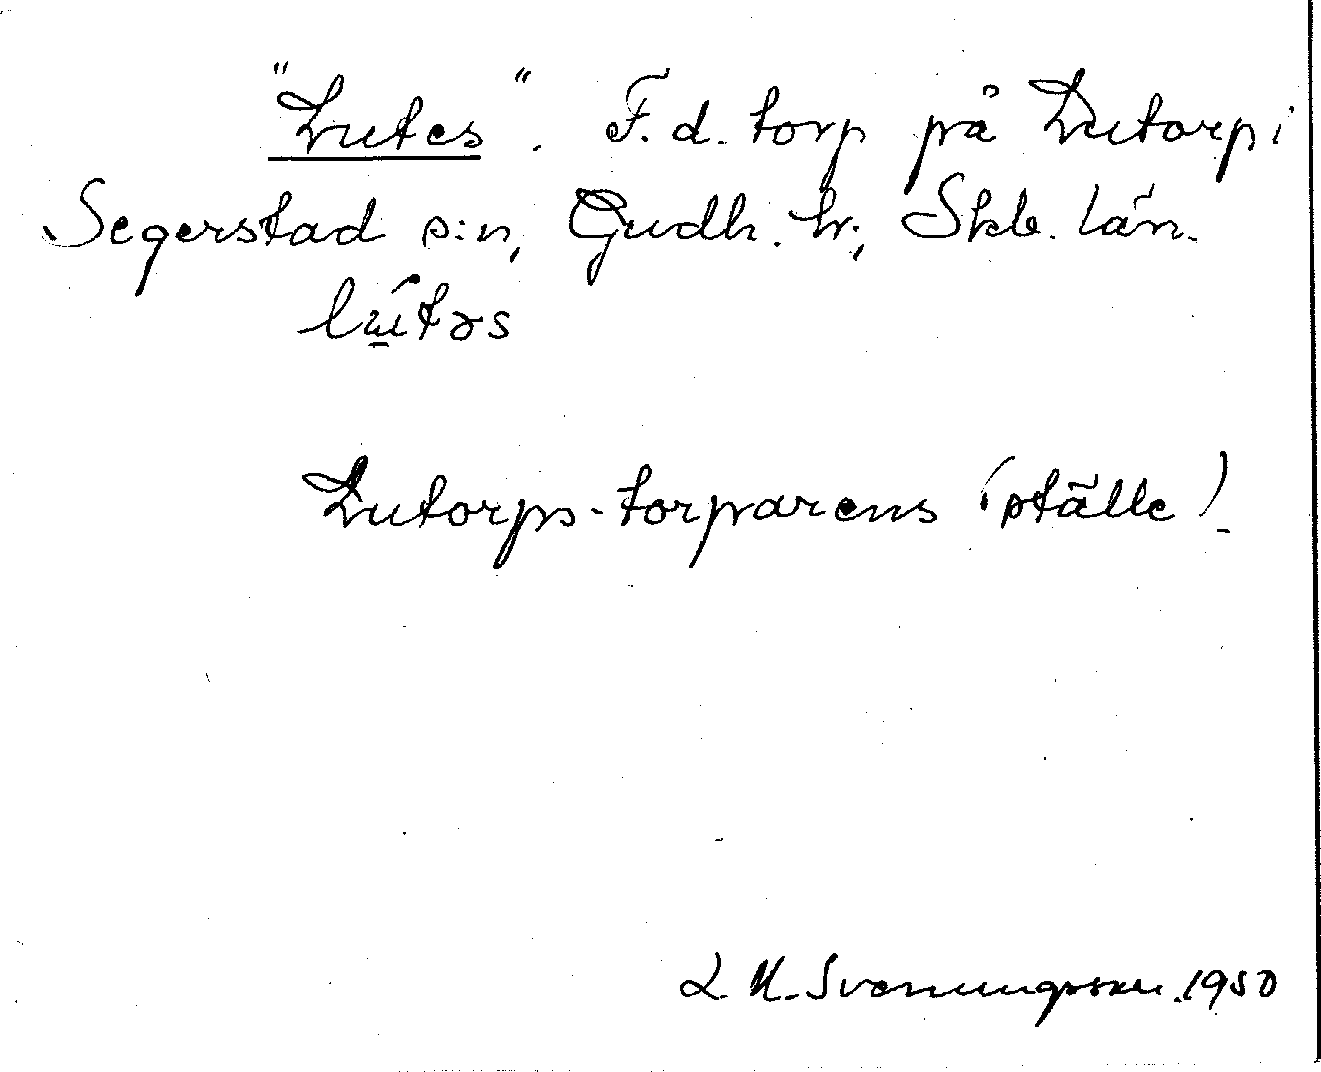 "Lutes". F.d. torp på Lutorp i
Segerstad s:n, Gudh. hr, Skb. län.
lú̲təs
Lutorps-torparens (ställe).
L. M. Svenungsson. 1950